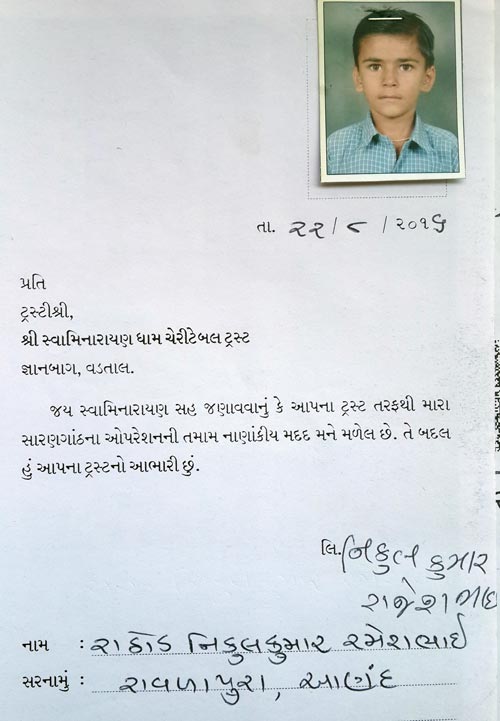 તા. ૨૨/૮/૨૦૧૬
પ્રતિ
ટ્રસ્ટીશ્રી,
શ્રી સ્વામિનારાયણ ધામ ચેરીટેબલ ટ્રસ્ટ
જ્ઞાનબાગ, વડતાલ.
જય સ્વામિનારાયણ સહ જણાવવાનું કે આપના ટ્રસ્ટ તરફથી મારા
સારણગાંઠના ઓપરેશનની તમામ નાણાંકીય મદદ મને મળેલ છે. તે બદલ
હું આપના ટ્રસ્ટનો આભારી છું.
લિ. નિકુલ કુમાર
નામ : રાઠોડ નિકુલકુમાર રમેશભાઈ
સરનામું : રાવળાપુરા, આણંદ